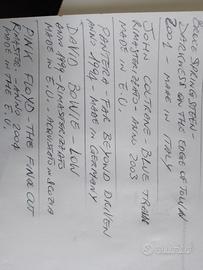 BRUCE SPRINGSTEEN -
DARKNESS ON THE EDGE OF TOWN
2001 - MADE IN ITALY
JOHN COLTRANE - BLUE TRAIN
RIMASTERIZZATO - ANNO 2003
MADE IN E.U.
PANTERA FAR BEYOND DRIVEN
ANNO 1994 - MADE IN GERMANY
DAVID BOWIE - LOW
ANNO 1999 - RIMASTERIZZATO
MADE IN E.U. ACQUISTATO IN SCOZIA
PINK FLOYD - THE FINAL CUT
RIMASTER - ANNO 2004
MADE IN THE E.U.
subito